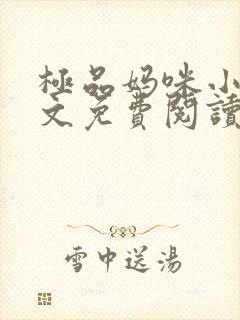 極品妈咪小
文免費閱讀
雪中送湯